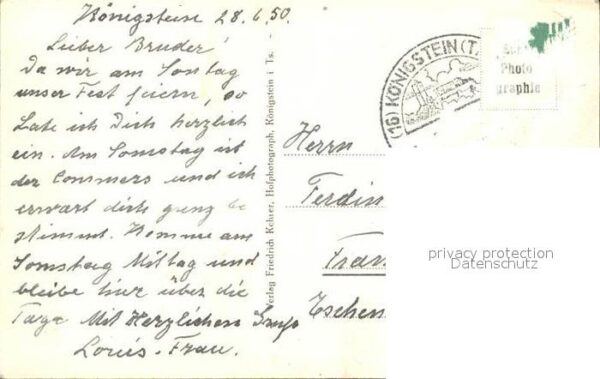 Königstein 28.6.50.
Lieber Bruder!
Da wir am Sontag
unser Fest feiern, so
Late ich Dich herzlich
ein. Am Somstag ist
der Commers und ich
erwart dich ganz be
stimmt. Komme am
Somstag Mittag und
bleibe hier über die
Tage Mit Herzlichen Gruß
Louis-Frau.
Verlag Friedrich Kehrer, Hofphotograph, Königstein i Ts.
(16) KÖNIGSTEIN (T
Photo
graphie
Herrn
Ferdin
Fran
Eschen
privacy protection
Datenschutz